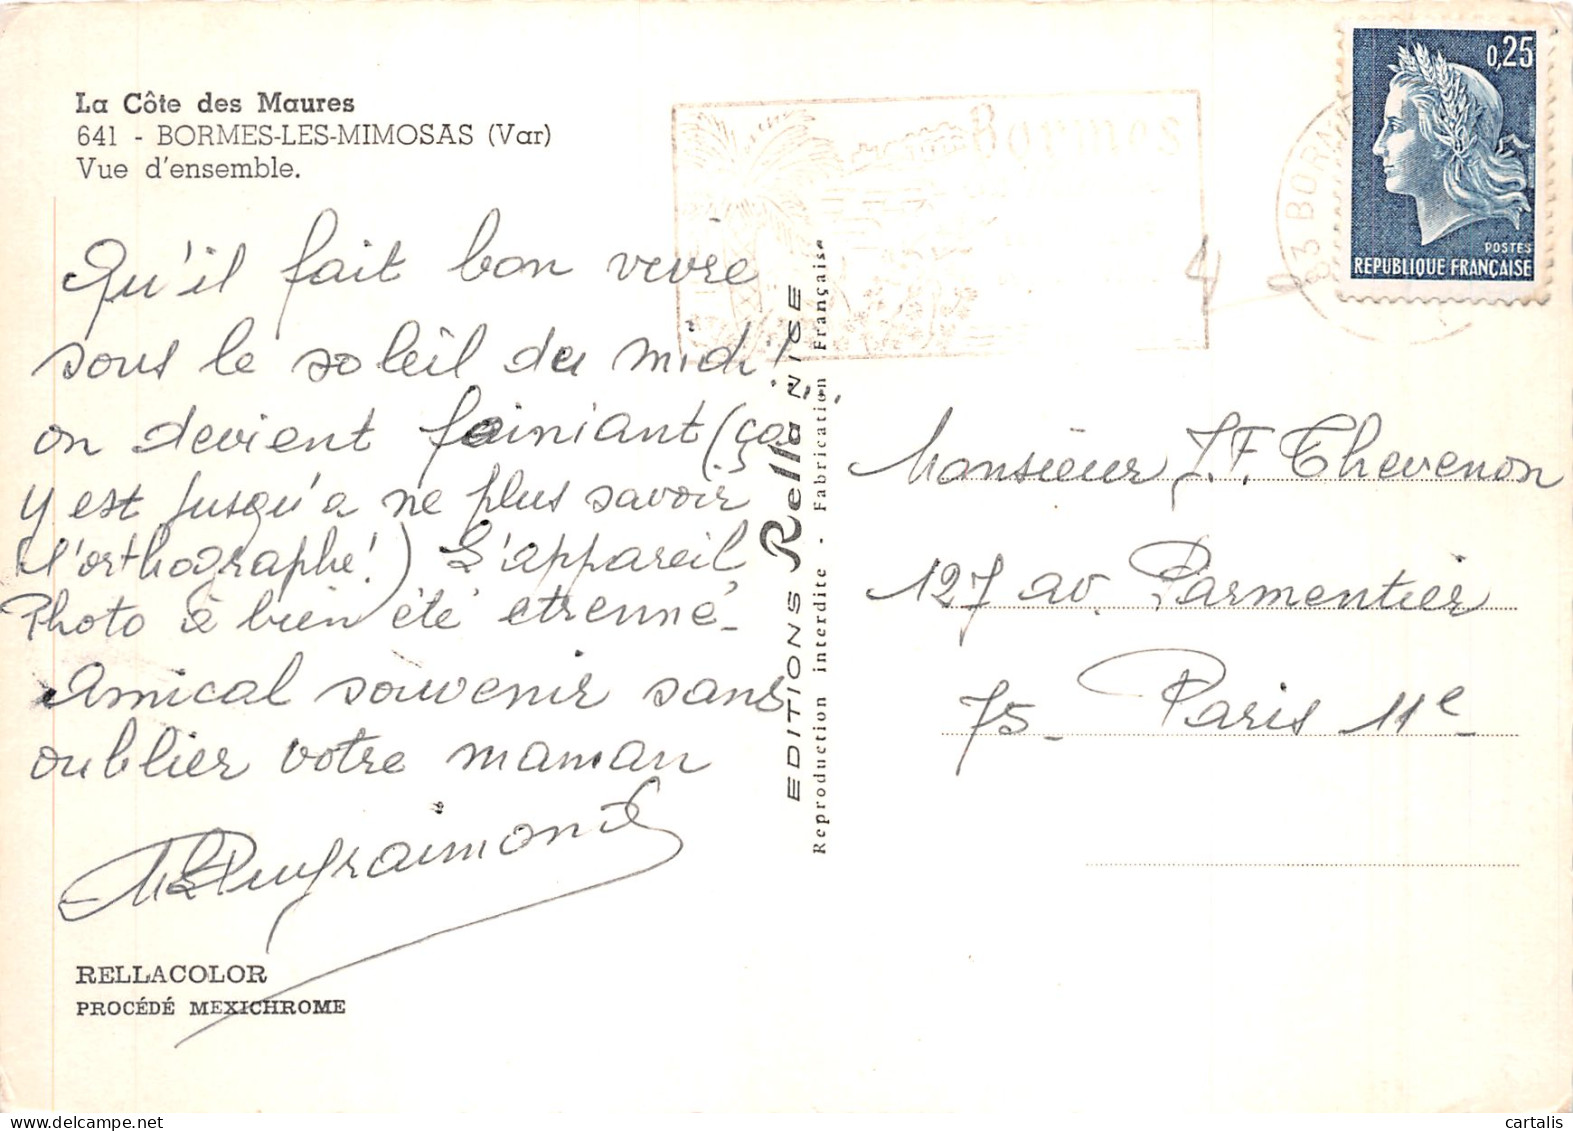 La Côte des Maures
641 - BORMES-LES-MIMOSAS (Var)
Vue d'ensemble.
Qu'il fait bon vivre
sous le soleil du midi!
on devient fainiant (ça
y est jusqu'a ne plus savoir
l'orthographe!) L'appareil
Photo à bien été etrenné_
Amical souvenir sans
oublier votre maman
RELLACOLOR
PROCÉDÉ MEXICHROME
EDITIONS Rella NICE
Reproduction interdite - Fabrication Française
Bormes
83 BORM
0,25
POSTES
REPUBLIQUE FRANÇAISE
Monsieur J.F. Thevenon
127 av. Parmentier
75_ Paris 11e
cartalis